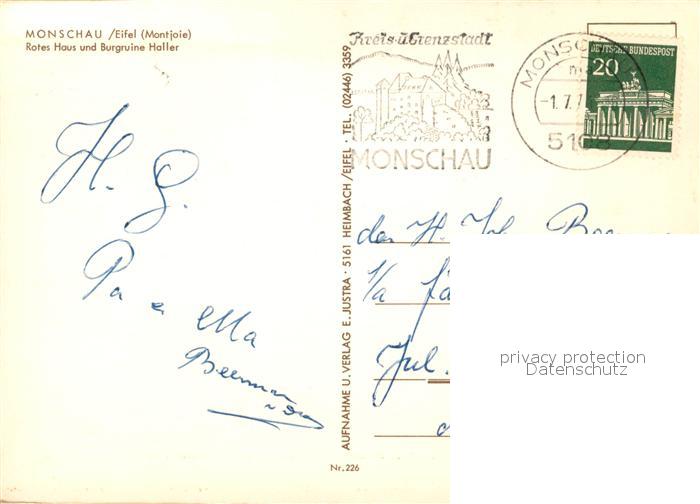 MONSCHAU /Eifel (Montjoie)
Rotes Haus und Burgruine Haller
H. G.
Pa e Ma
Beerman
Nr. 226
AUFNAHME U. VERLAG E. JUSTRA · 5161 HEIMBACH /EIFEL · TEL. (02446) 3359
Kreis- u. Grenzstadt
MONSCHAU
MONSCHAU
-1.7.7
5108
DEUTSCHE BUNDESPOST
20
H.
1/a
Jul.
privacy protection
Datenschutz